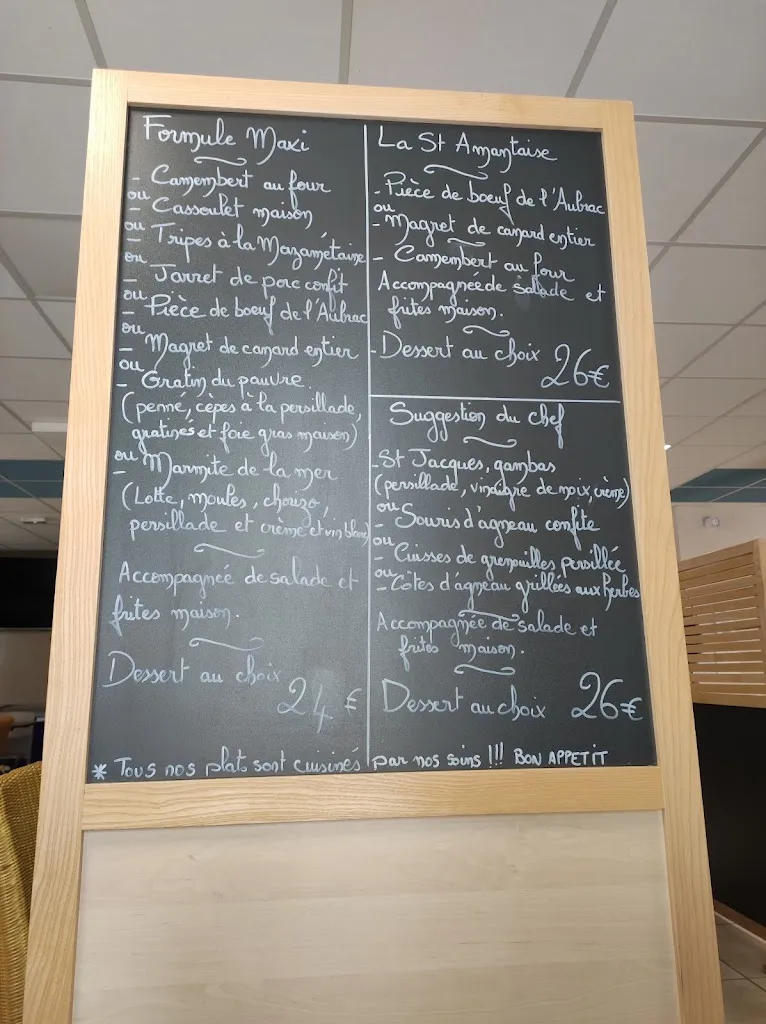 Formule Maxi
- Camembert au four
ou
- Cassoulet maison
ou
- Tripes à la Mazamétaine
ou
- Jarret de porc confit
ou
- Pièce de boeuf de l'Aubrac
ou
- Magret de canard entier
ou
- Gratin du pauvre
(penné, cèpes à la persillade,
gratinés et foie gras maison)
ou
- Marmite de la mer
(Lotte, moules, chorizo,
persillade et crème et vin blanc)
Accompagnée de salade et
frites maison.
Dessert au choix
24 €
La St Amantaise
- Pièce de boeuf de l'Aubrac
ou
- Magret de canard entier
- Camembert au four
Accompagnée de salade et
frites maison.
- Dessert au choix 26€
Suggestion du chef
- St Jacques, gambas
(persillade, vinaigre de noix, crème)
ou
- Souris d'agneau confite
ou
- Cuisses de grenouilles persillée
ou
- Côtes d'agneau grillées aux herbes
Accompagnée de salade et
frites maison.
Dessert au choix 26€
* Tous nos plats sont cuisinés par nos soins !!! BON APPETIT